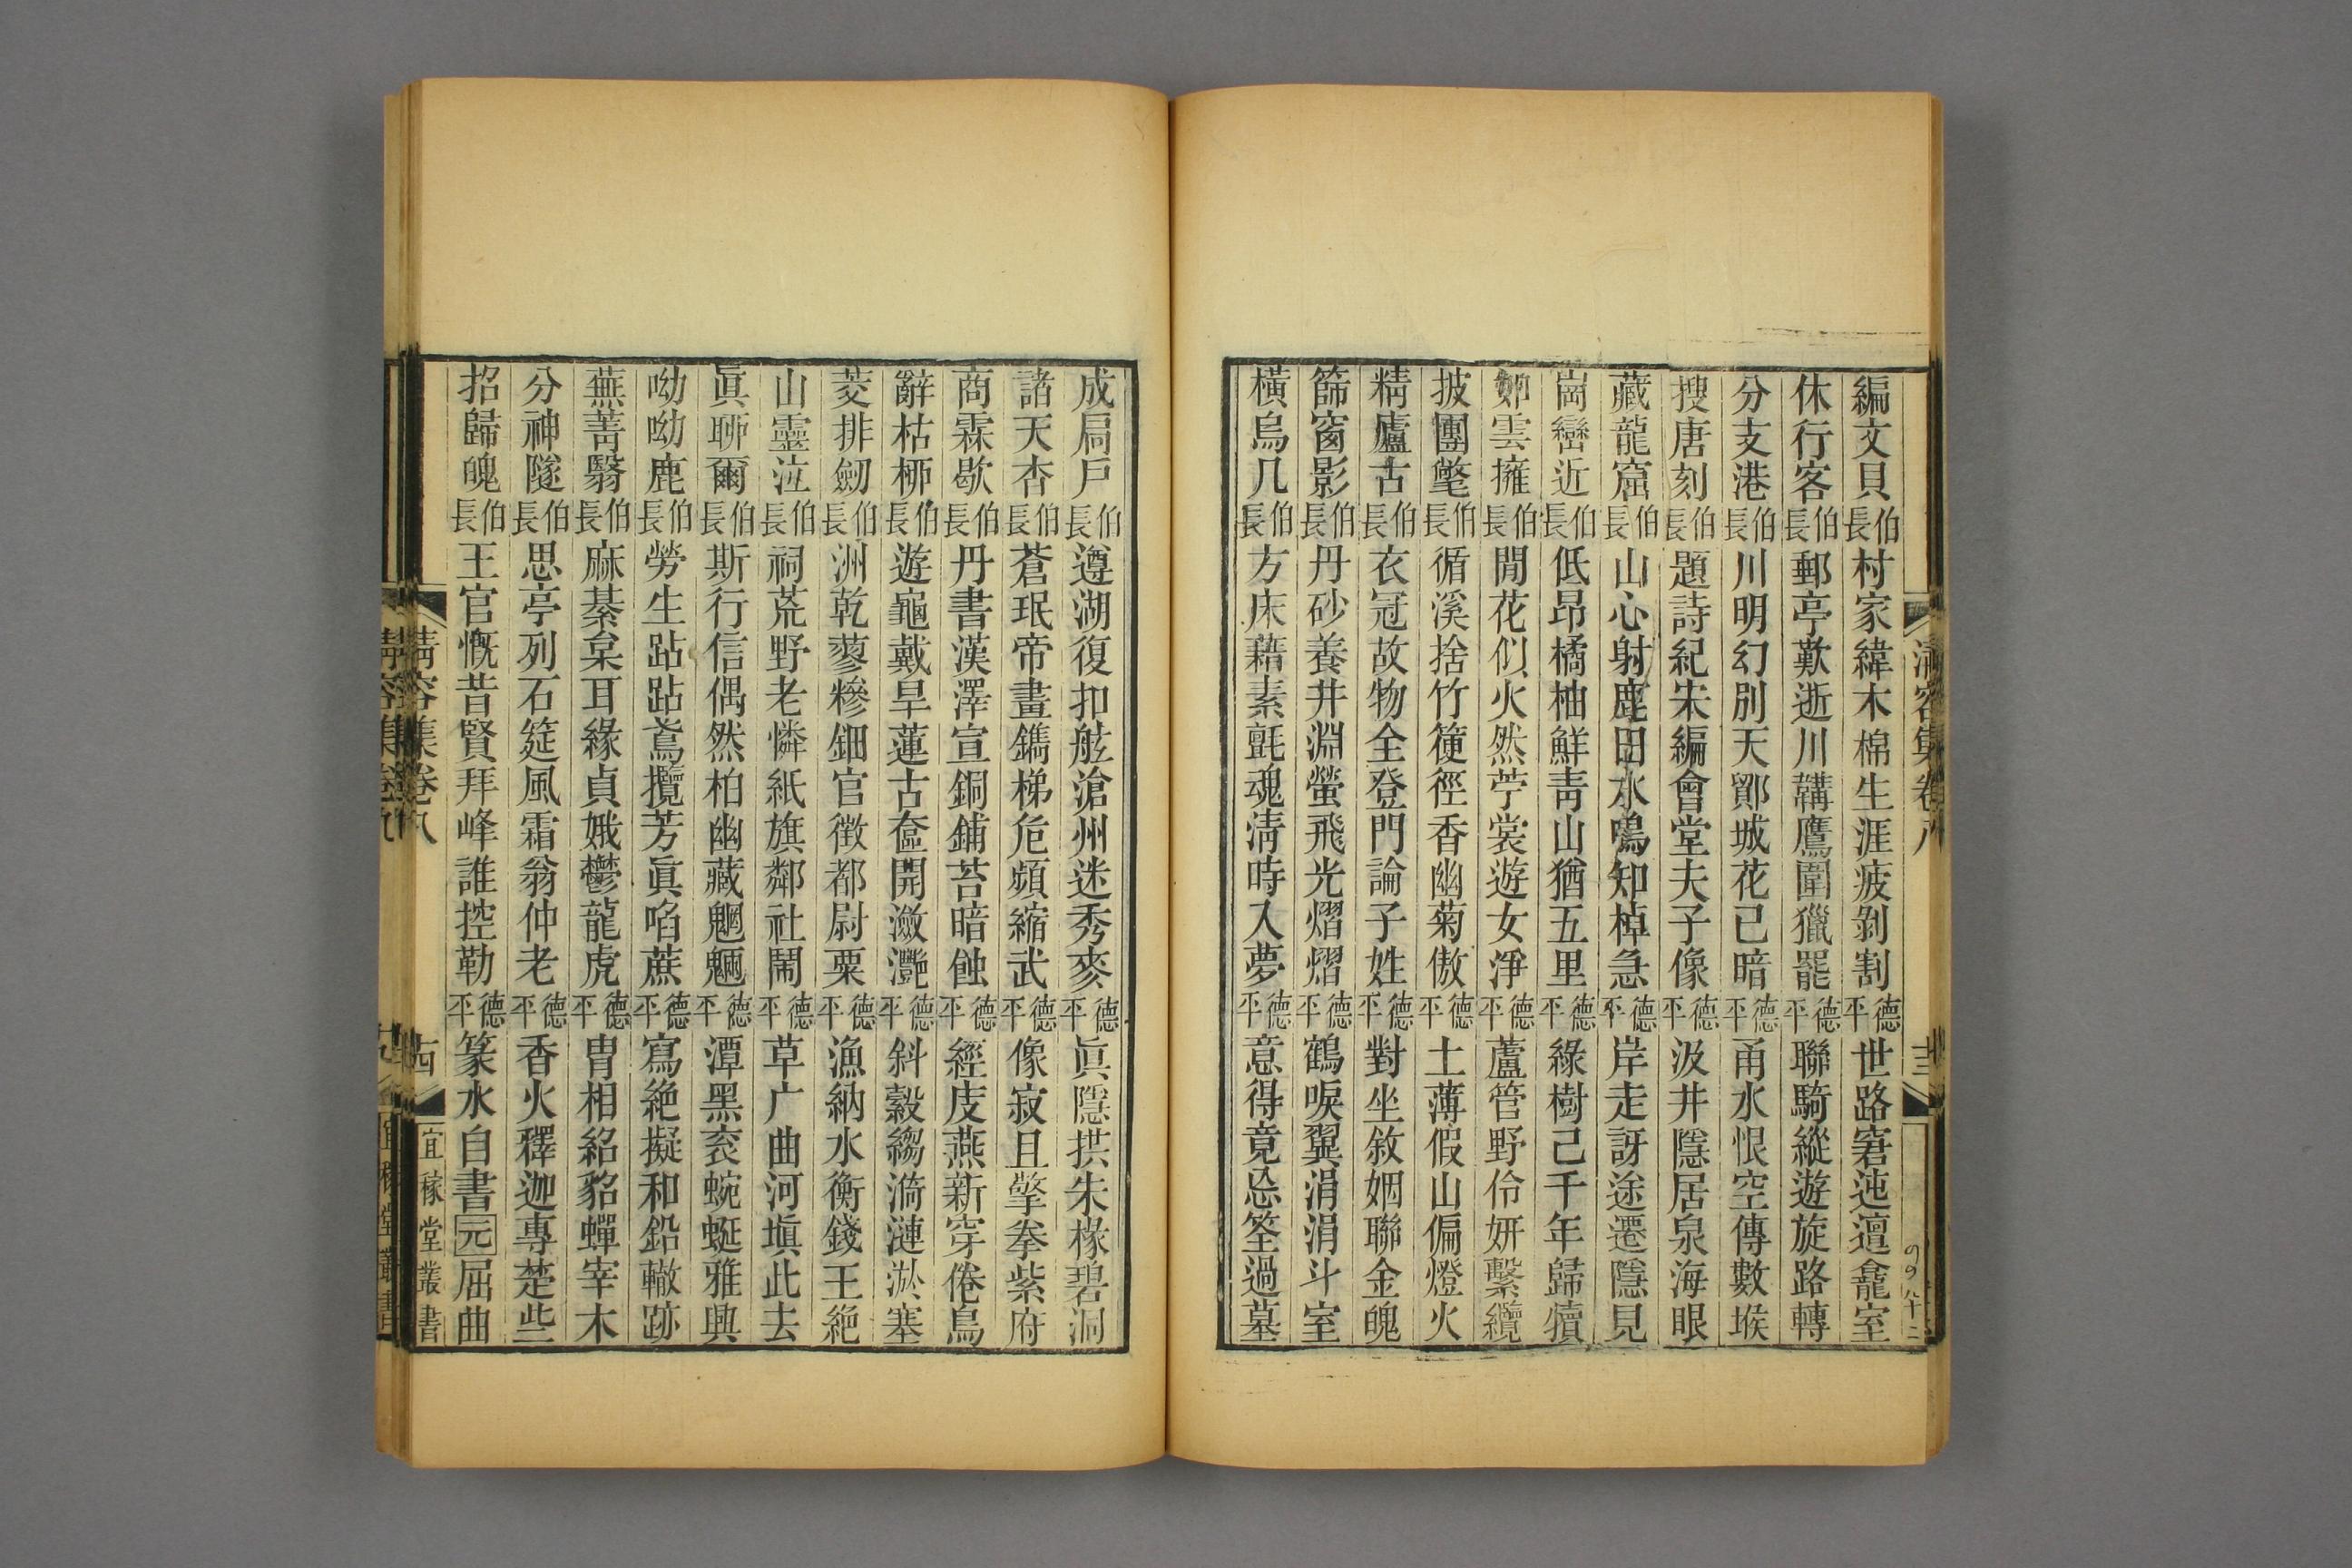 清容集卷八
十三
編文貝伯長村家緯木棉生涯疲剝割德平世路窘迍邅龕室
休行客伯長郵亭歎逝川韝鷹圍獵罷德平聯騎縱遊旋路轉
分支港伯長川明幻別天鄮城花已暗德平甬水恨空傳數堠
搜唐刻伯長題詩紀朱編會堂夫子像德平汲井隱居泉海眼
藏龍窟伯長山心射鹿田水鳴知棹急德平岸走訝途遷隱見
崗巒近伯長低昂橘柚鮮靑山猶五里德平綠樹己千年歸犢
鄭雲擁伯長閒花似火然苧裳遊女淨德平蘆管野伶妍繫纜
披團氅伯長循溪捨竹籧徑香幽菊傲德平土薄假山偏燈火
精廬古伯長衣冠故物全登門論子姓德平對坐敘姻聯金魄
篩窗影伯長丹砂養井淵螢飛光熠熠德平鶴唳翼涓涓斗室
橫烏几伯長方床藉素氈魂淸時入夢德平意得竟忘筌過墓
成扃戶伯長遵湖復扣舷滄州迷秀麥德平眞隱拱朱椽碧洞
諸天杳伯長蒼珉帝畫鐫梯危頻縮武德平像寂且擎拳紫府
商霖歇伯長丹書漢澤宣銅鋪苔暗蝕德平經庋燕新穿倦鳥
辭枯栁伯長遊龜戴旱蓮古奩開瀲灔德平斜縠縐漪漣淤塞
菱排劒伯長洲乾蓼糝鈿官徵都尉粟德平漁納水衡錢王絶
山靈泣伯長祠荒野老憐紙旗鄰社鬧德平草广曲河壖此去
眞聊爾伯長斯行信偶然柏幽藏魍魎德平潭黑衮蜿蜒雅興
呦呦鹿伯長勞生跕跕鳶攬芳眞啗蔗德平寫絶擬和鉛轍跡
蕪菁翳伯長麻綦枲耳緣貞娥鬱龍虎德平胄相紹貂蟬宰木
分神隧伯長思亭列石筵風霜翁仲老德平香火釋迦專楚些
招歸魄伯長王官慨昔賢拜峰誰控勒德平篆水自書元屈曲
清容集卷八
十四
宜稼堂叢書